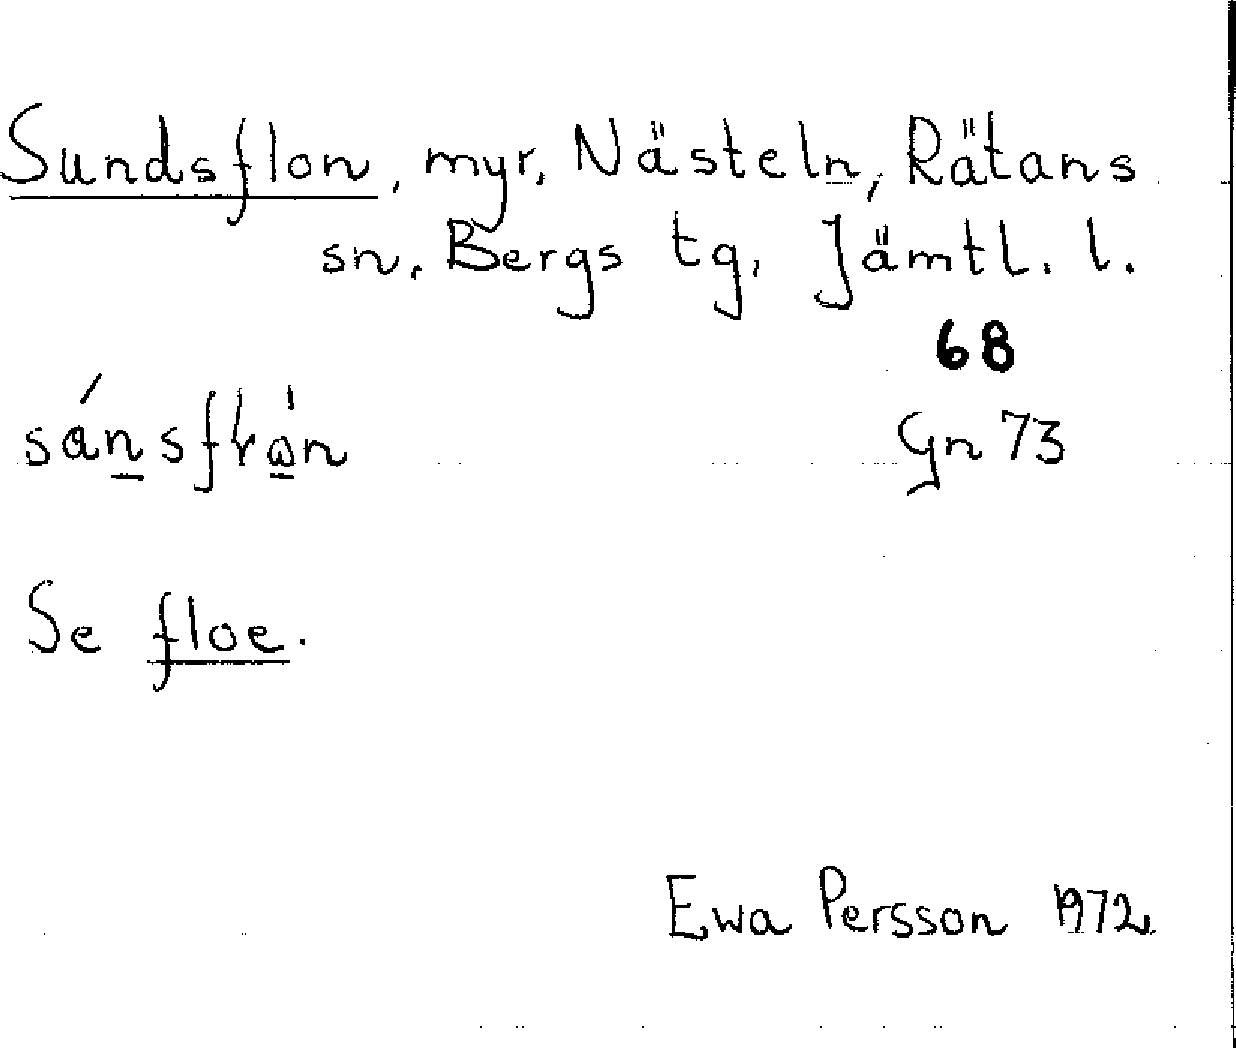 Sundsflon, myr, Nästeln, Rätans
sn, Bergs tg, Jämtl. l.
68
Gn 73
Se floe.
Ewa Persson 1972.